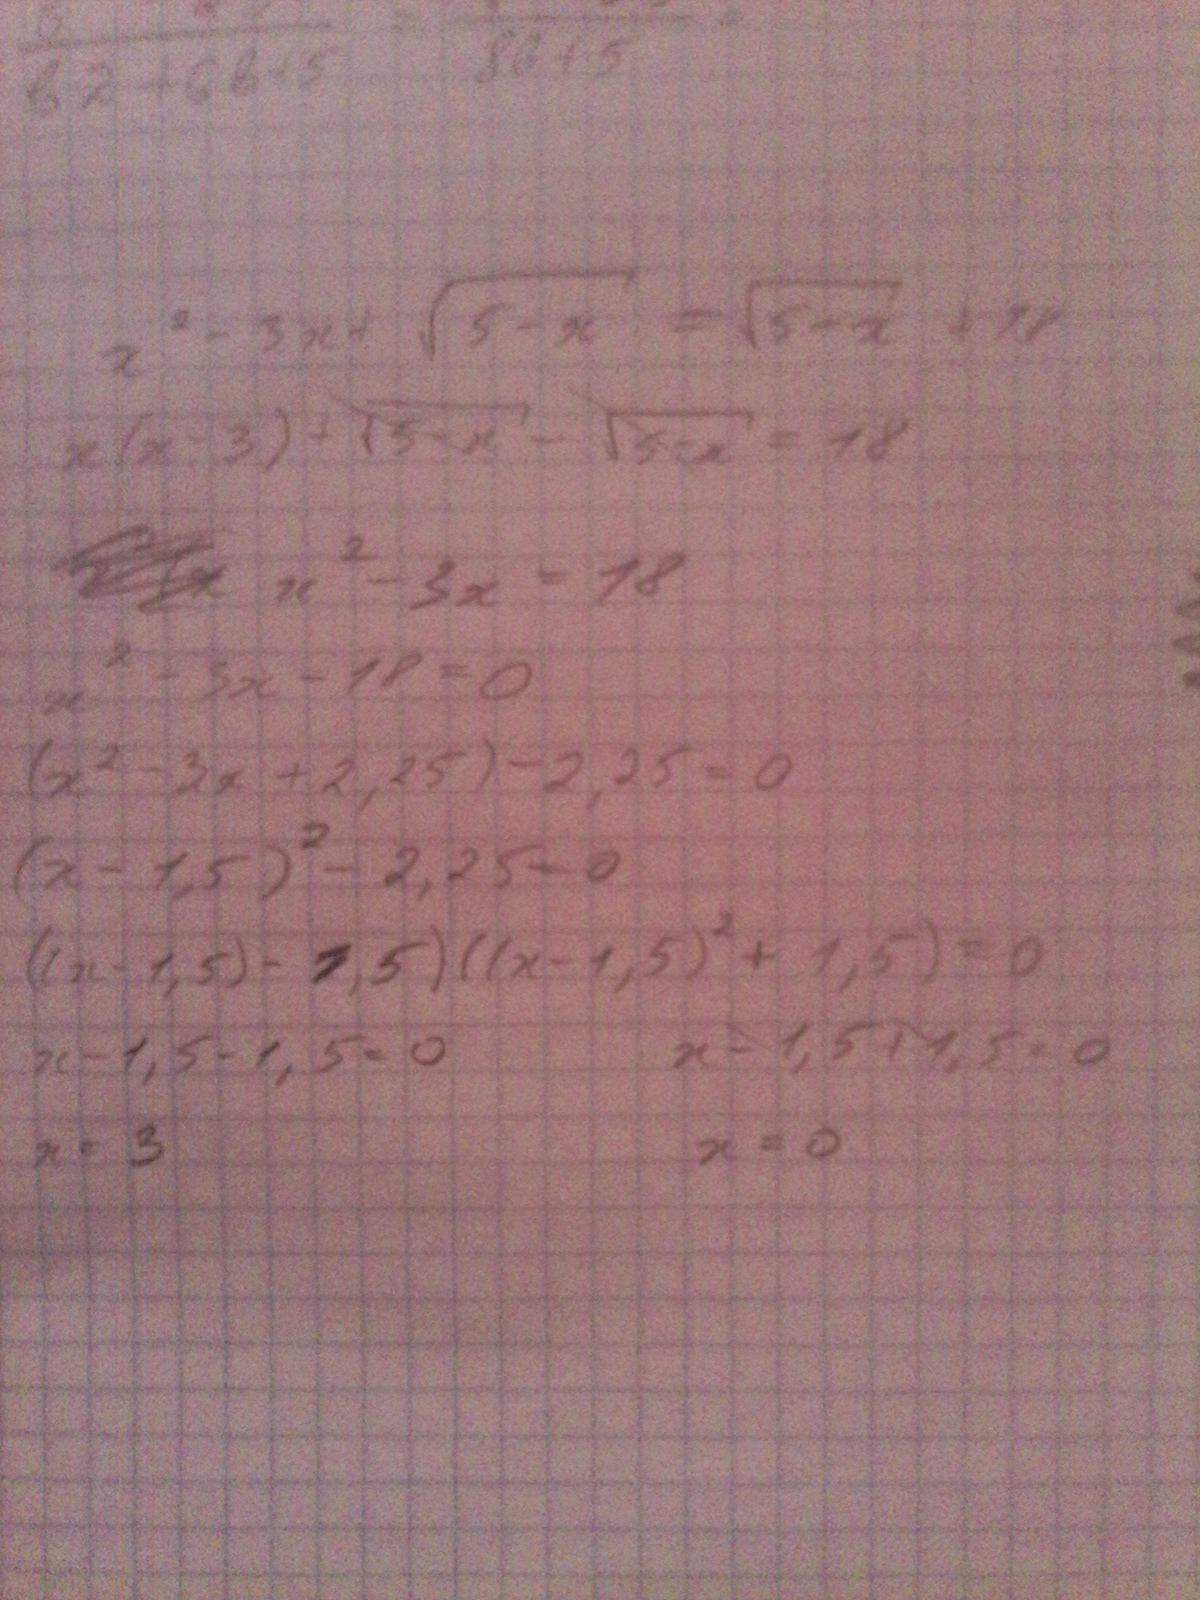 b2 + 6b+5 = 8b+5 =
x² - 3x + √5-x = √5-x + 18
x(x-3) + √5-x - √5-x = 18
x² - 3x = 18
x² - 3x - 18 = 0
(x² - 3x + 2,25) - 2,25 = 0
(x - 1,5)² - 2,25 = 0
((x-1,5) - 1,5)((x-1,5)² + 1,5) = 0
x-1,5-1,5=0 x-1,5+1,5=0
x = 3 x = 0